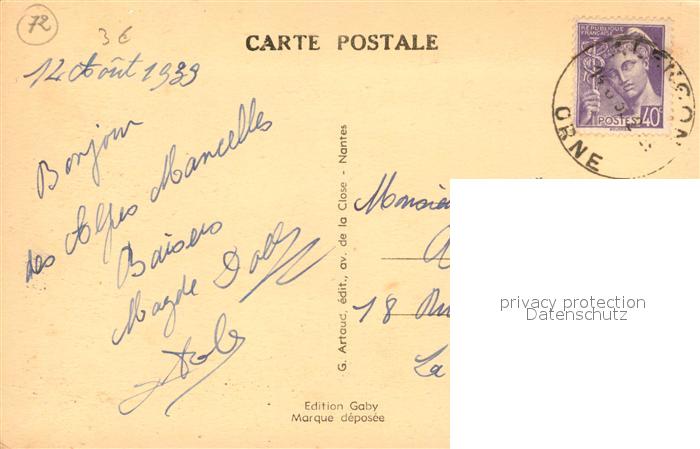 72
3€
CARTE POSTALE
14 Août 1939
Bonjour
des Alpes Mancelles
Baisers
Magde
G. Artaud, édit., av. de la Close - Nantes
Edition Gaby
Marque déposée
RÉPUBLIQUE
FRANÇAISE
POSTES 40c
ALENÇON
ORNE
Monsie
18 Ru
La
privacy protection
Datenschutz